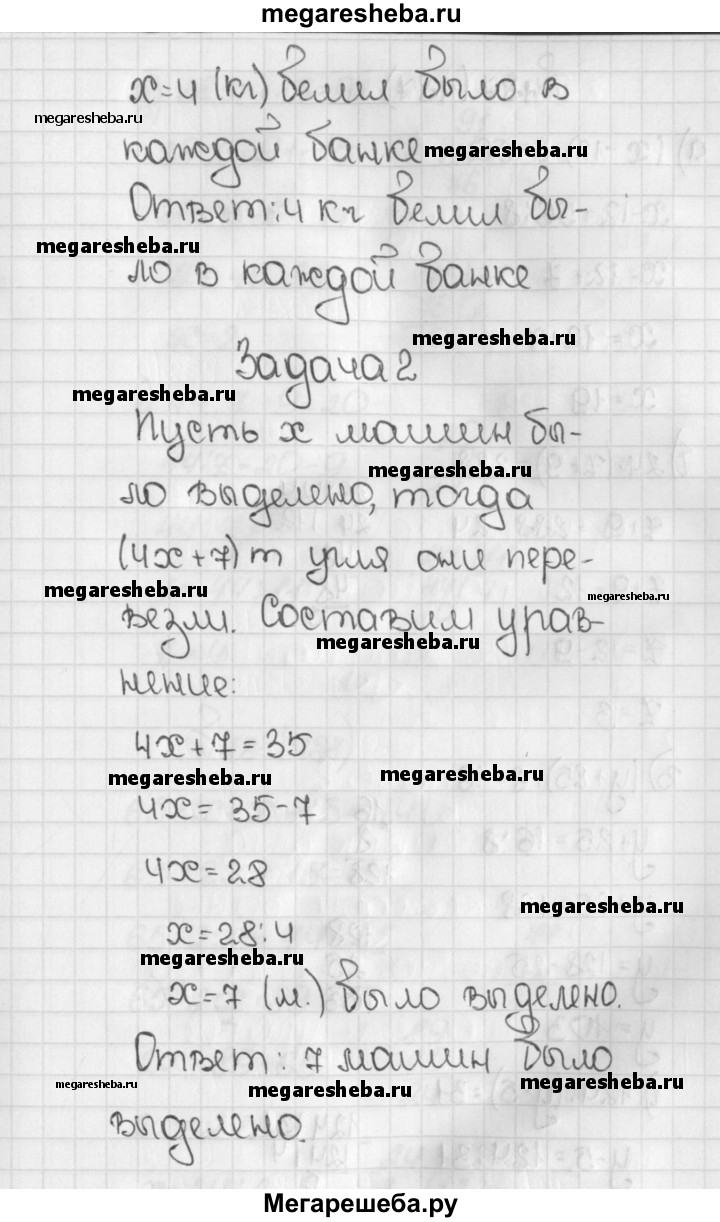 megaresheba.ru
x=4 (кг) белил было в
megaresheba.ru
каждой банке
megaresheba.ru
Ответ: 4 кг белил бы-
megaresheba.ru
ло в каждой банке
megaresheba.ru
Задача 2
megaresheba.ru
Пусть x машин бы-
megaresheba.ru
ло выделено, тогда
(4x+7) т угля они пере-
megaresheba.ru
megaresheba.ru
везли. Составим урав-
megaresheba.ru
нение:
4x+7=35
megaresheba.ru
megaresheba.ru
4x=35-7
4x=28
megaresheba.ru
x=28:4
megaresheba.ru
x=7 (м.) было выделено.
Ответ: 7 машин было
megaresheba.ru
megaresheba.ru
megaresheba.ru
выделено.
Мегарешеба.ру